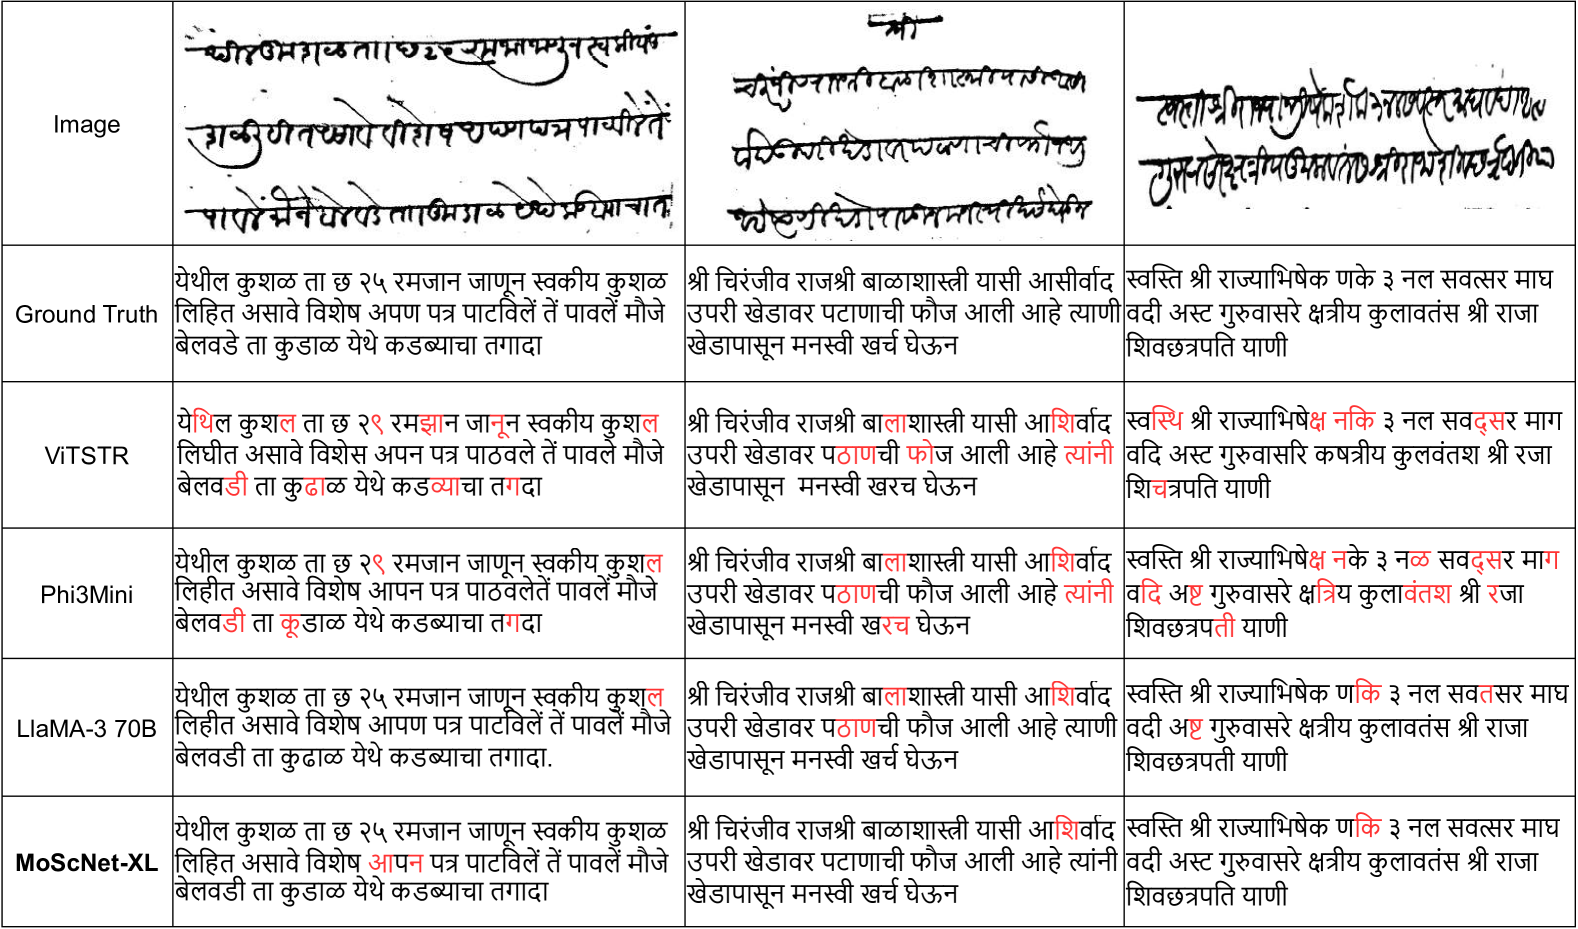 Image
श्री
Ground Truth
येथील कुशळ ता छ २५ रमजान जाणून स्वकीय कुशळ
लिहित असावे विशेष अपण पत्र पाटविलें तें पावलें मौजे
बेलवडे ता कुडाळ येथे कडब्याचा तगादा
श्री चिरंजीव राजश्री बाळाशास्त्री यासी आसीर्वाद
उपरी खेडावर पटाणाची फौज आली आहे त्याणी
खेडापासून मनस्वी खर्च घेऊन
स्वस्ति श्री राज्याभिषेक णके ३ नल सवत्सर माघ
वदी अस्ट गुरुवासरे क्षत्रीय कुलावतंस श्री राजा
शिवछत्रपति याणी
ViTSTR
येथिल कुशल ता छ २९ रमझान जानून स्वकीय कुशल
लिघीत असावे विशेस अपन पत्र पाठवले तें पावले मौजे
बेलवडी ता कुढाळ येथे कडव्याचा तगदा
श्री चिरंजीव राजश्री बालाशास्त्री यासी आशिर्वाद
उपरी खेडावर पठाणची फोज आली आहे त्यांनी
खेडापासून मनस्वी खरच घेऊन
स्वस्थि श्री राज्याभिषेक्ष नकि ३ नल सवद्सर माग
वदि अस्ट गुरुवासरि कषत्रीय कुलवंतश श्री रजा
शिचत्रपति याणी
Phi3Mini
येथील कुशळ ता छ २९ रमजान जाणून स्वकीय कुशल
लिहीत असावे विशेष आपन पत्र पाठवलेतें पावलें मौजे
बेलवडी ता कूडाळ येथे कडब्याचा तगदा
श्री चिरंजीव राजश्री बालाशास्त्री यासी आशिर्वाद
उपरी खेडावर पठाणची फौज आली आहे त्यांनी
खेडापासून मनस्वी खरच घेऊन
स्वस्ति श्री राज्याभिषेक्ष नके ३ नळ सवद्सर माग
वदि अष्ट गुरुवासरे क्षत्रिय कुलावंतश श्री रजा
शिवछत्रपती याणी
LlaMA-3 70B
येथील कुशळ ता छ २५ रमजान जाणून स्वकीय कुशल
लिहीत असावे विशेष आपण पत्र पाटविलें तें पावलें मौजे
बेलवडी ता कुढाळ येथे कडब्याचा तगादा.
श्री चिरंजीव राजश्री बालाशास्त्री यासी आशिर्वाद
उपरी खेडावर पठाणची फौज आली आहे त्याणी
खेडापासून मनस्वी खर्च घेऊन
स्वस्ति श्री राज्याभिषेक णकि ३ नल सवतसर माघ
वदी अष्ट गुरुवासरे क्षत्रीय कुलावतंस श्री राजा
शिवछत्रपती याणी
MoScNet-XL
येथील कुशळ ता छ २५ रमजान जाणून स्वकीय कुशळ
लिहित असावे विशेष आपन पत्र पाटविलें तें पावलें मौजे
बेलवडी ता कुडाळ येथे कडब्याचा तगादा
श्री चिरंजीव राजश्री बाळाशास्त्री यासी आशिर्वाद
उपरी खेडावर पटाणाची फौज आली आहे त्यांनी
खेडापासून मनस्वी खर्च घेऊन
स्वस्ति श्री राज्याभिषेक णकि ३ नल सवत्सर माघ
वदी अस्ट गुरुवासरे क्षत्रीय कुलावतंस श्री राजा
शिवछत्रपति याणी